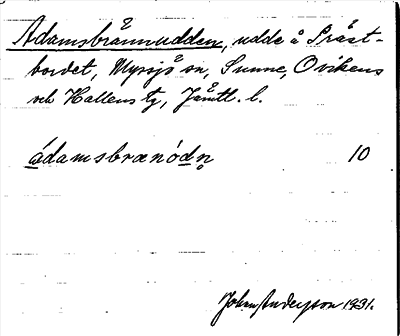 Adamsbrännudden, udde å Präst-
bordet, Myssjö sn, Sunne, Ovikens
och Hallens tg, Jämtl. l.
ádamsbrænódn̥ 10
Johan Andersson 1931.